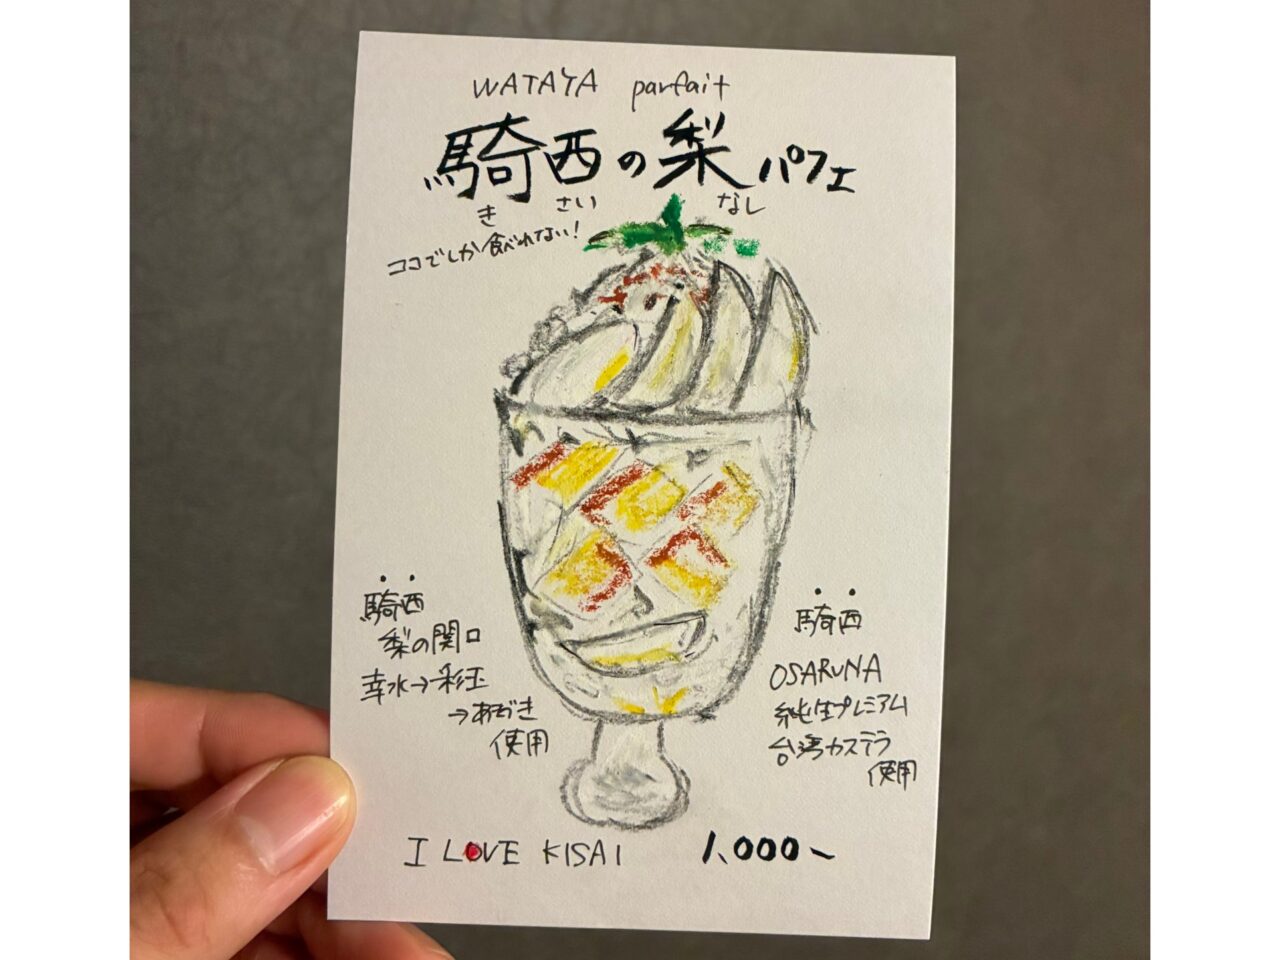 WATAYA parfait
騎西の梨パフェ
きさい なし
ココでしか食べれない!
騎西
梨の関口
幸水→彩玉
→あきづき
使用
騎西
OSARUNA
純生プレミアム
台湾カステラ
使用
I LOVE KISAI 1,000~